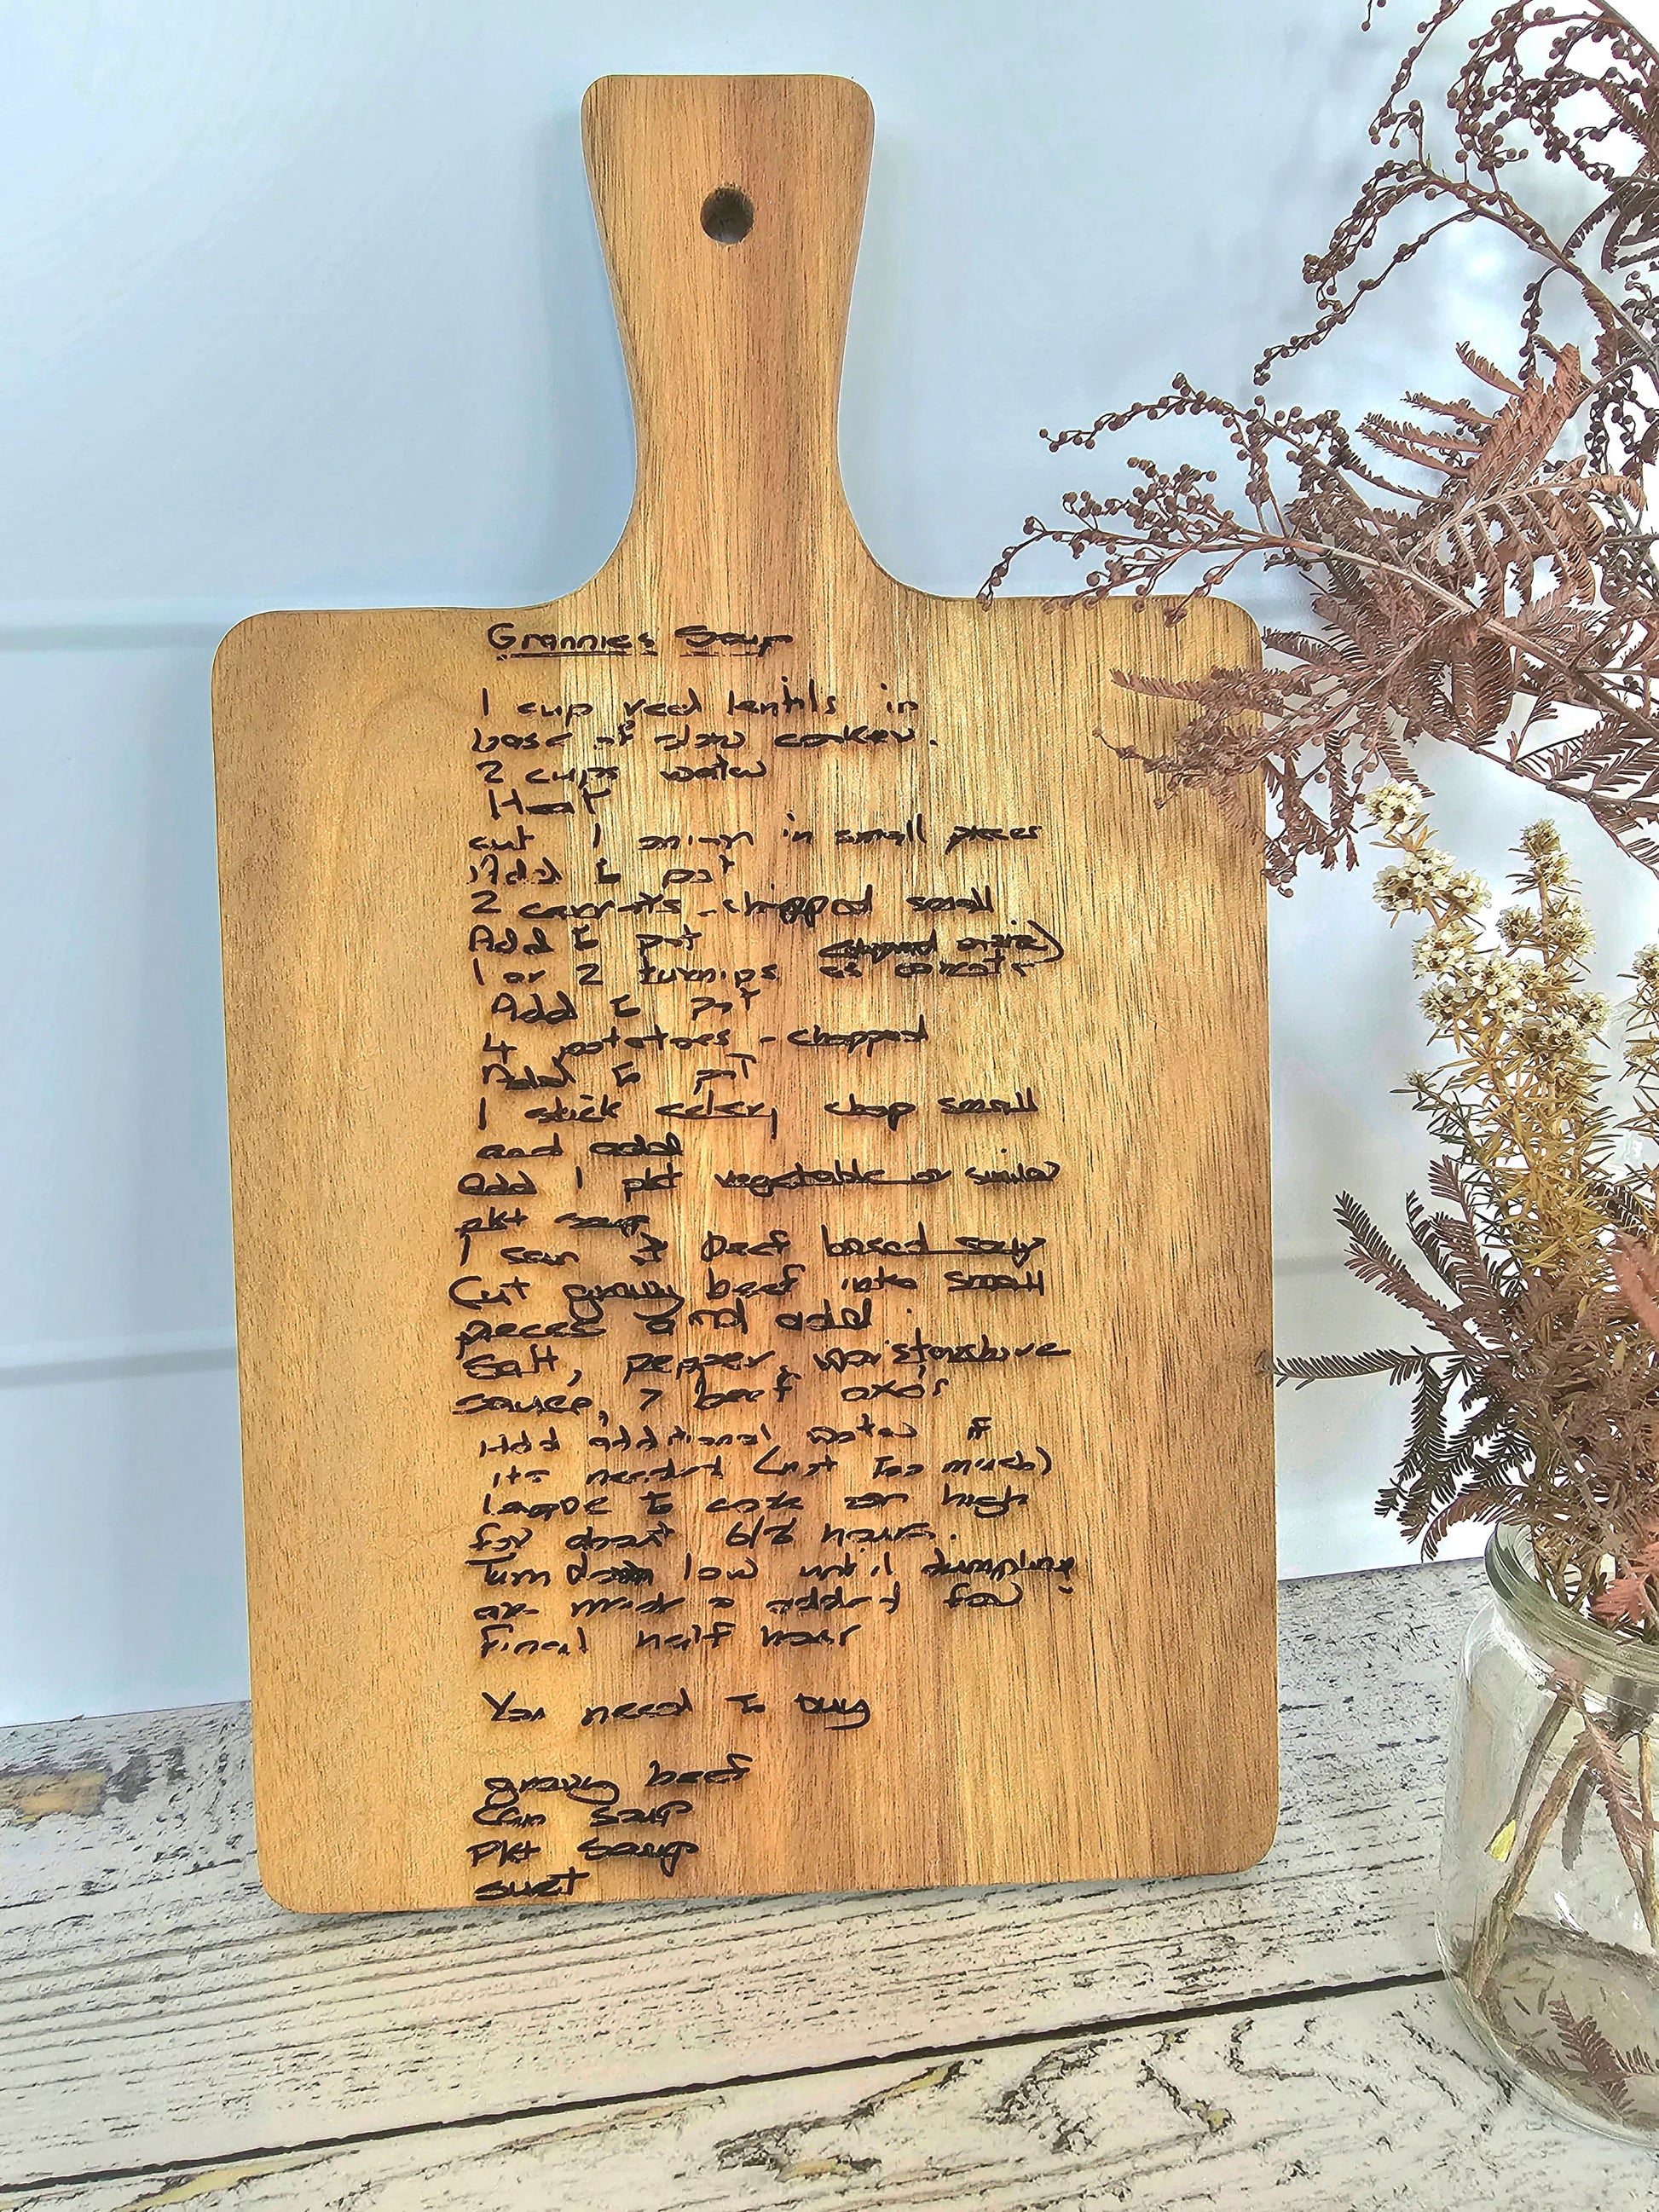 Grannies Soup
1 cup red lentils in
base of slow cooker.
2 cups water
Heat
cut 1 onion in small pieces
Add to pot
2 carrots - chipped small
Add to pot
1 or 2 turnips as carrots
Add to pot
4 potatoes - chopped
Add to pot
1 stick celery chop small
and add
add 1 pkt vegetable or similar
pkt soup
1 can of beef based soup
Cut gravy beef into small
pieces and add.
Salt, pepper, worstershire
sauce, 7 beef oxo's
Add additional water if
its needed (not too much)
leave to cook on high
for about hours.
Turn down low until dumplings
are made added for
final half hour
You need to buy
gravy beef
Can soup
Pkt Soup
suet